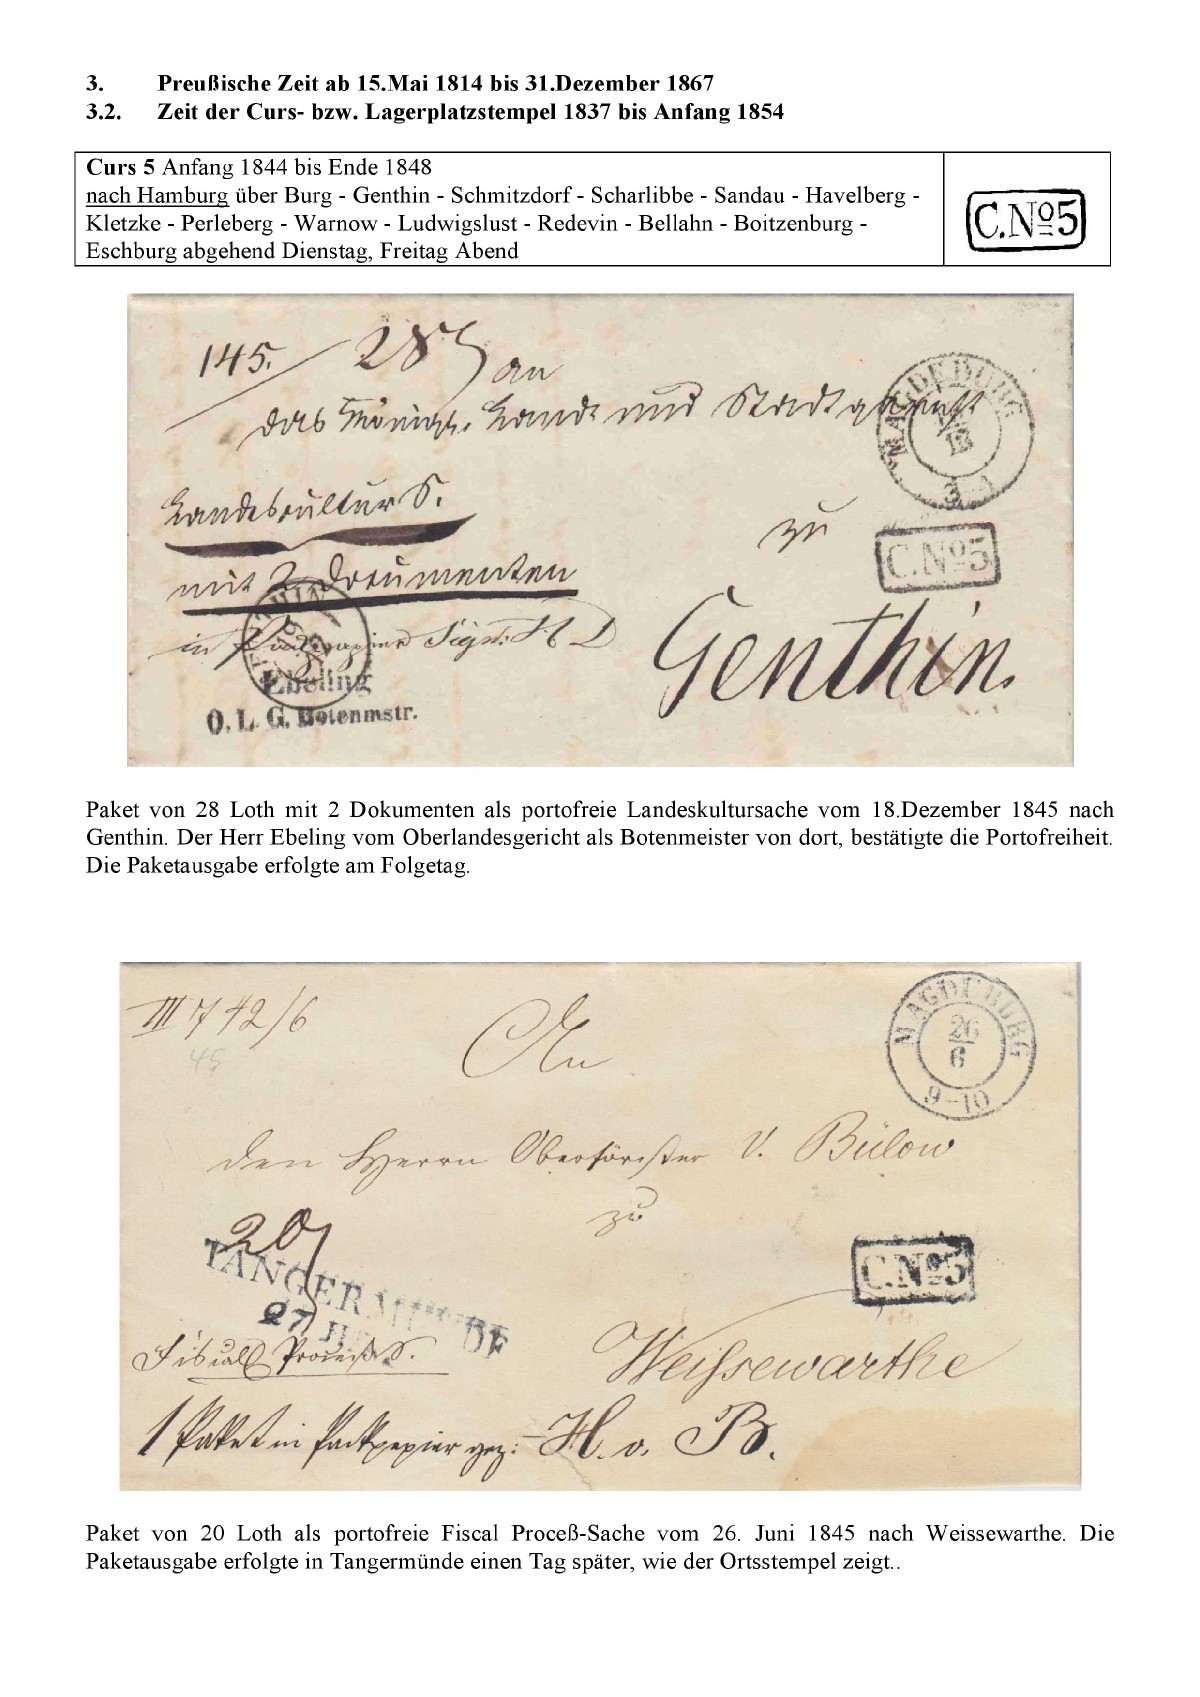 3. Preußische Zeit ab 15.Mai 1814 bis 31.Dezember 1867
3.2. Zeit der Curs- bzw. Lagerplatzstempel 1837 bis Anfang 1854
Curs 5 Anfang 1844 bis Ende 1848
nach Hamburg über Burg - Genthin - Schmitzdorf - Scharlibbe - Sandau - Havelberg -
Kletzke - Perleberg - Warnow - Ludwigslust - Redevin - Bellahn - Boitzenburg -
Eschburg abgehend Dienstag, Freitag Abend
C.No5
145. 28
an
das Königl. Land und Stadtgericht
MAGDEBURG
18
12
Landescultur S.
zu
C.No5
mit 2 Documenten
Genthin.
Ebeling
O. L. G. Botenmstr.
Paket von 28 Loth mit 2 Dokumenten als portofreie Landeskultursache vom 18.Dezember 1845 nach
Genthin. Der Herr Ebeling vom Oberlandesgericht als Botenmeister von dort, bestätigte die Portofreiheit.
Die Paketausgabe erfolgte am Folgetag.
III 742/6
45
An
MAGDEBURG
26
6
9-10
den Herrn Oberförster v. Bülow
zu
20
TANGERMUNDE
27 JU
C.No5
Fiscal. Proceß S.
Weissewarthe
1 Paket in Packpapier gez: H. v. B.
Paket von 20 Loth als portofreie Fiscal Proceß-Sache vom 26. Juni 1845 nach Weissewarthe. Die
Paketausgabe erfolgte in Tangermünde einen Tag später, wie der Ortsstempel zeigt..